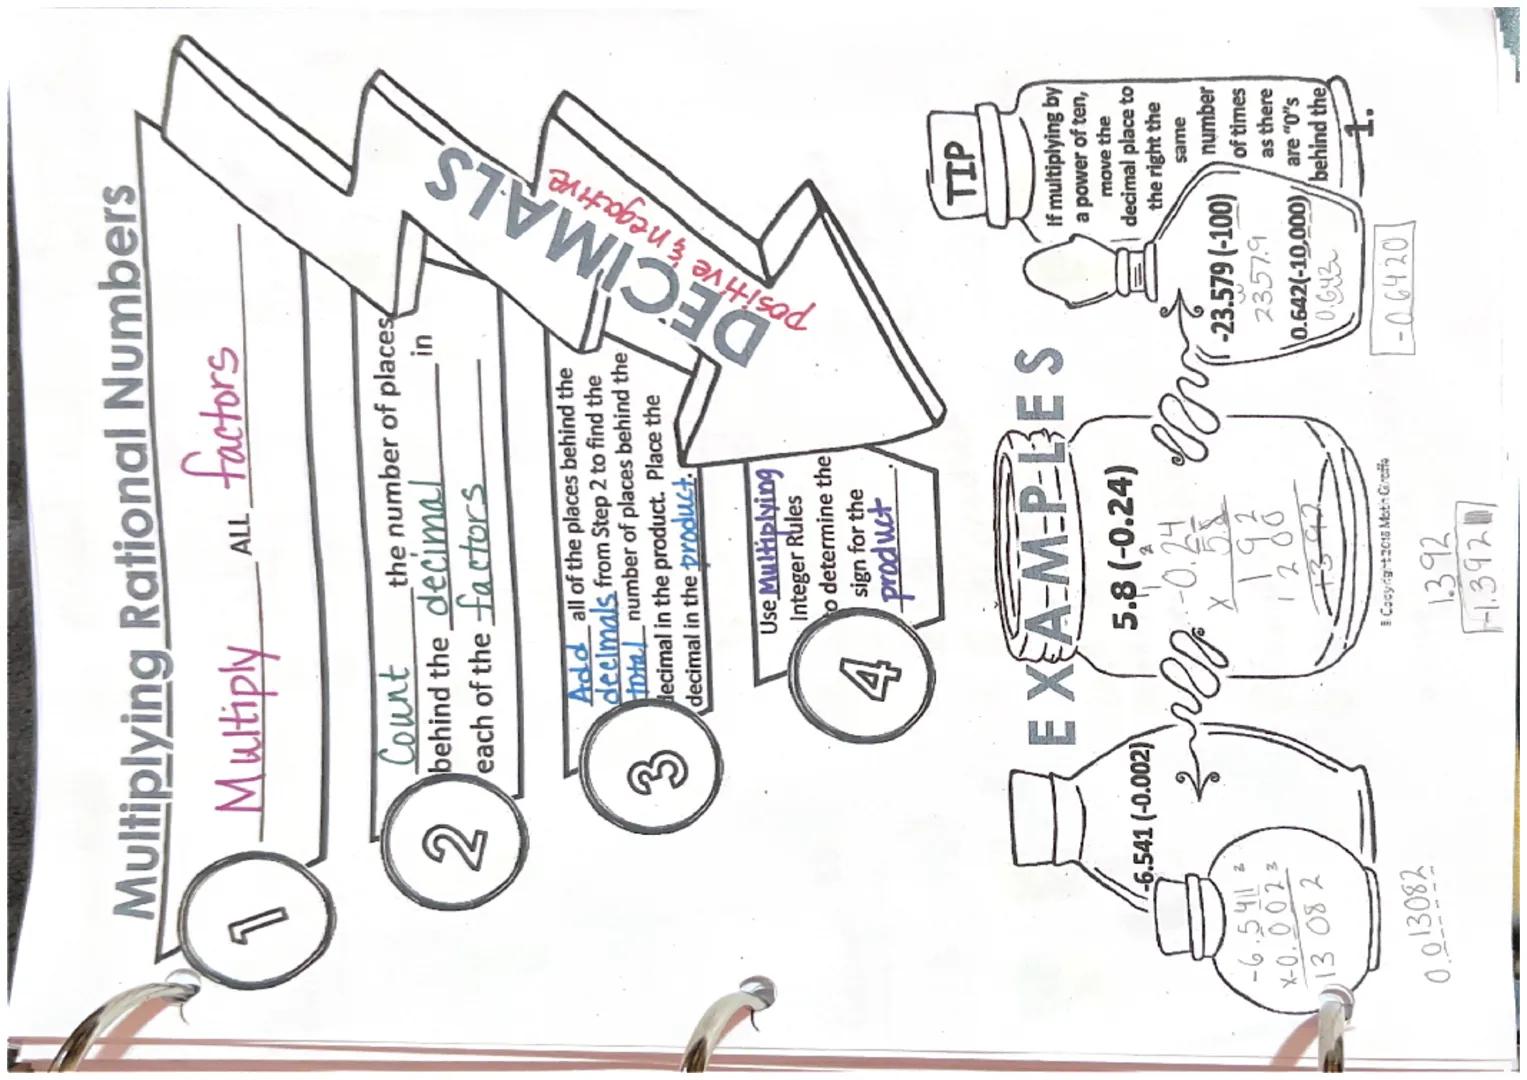 Multiplying Rational Numbers
1
Multiply ALL factors
2
Count the number of places
behind the decimal in
each of the factors
3
Add all of the places behind the
decimals from Step 2 to find the
total number of places behind the
decimal in the product. Place the
decimal in the product.
4
Use Multiplying
Integer Rules
to determine the
sign for the
product.
DECIMALS
positive & negative
EXAMPLES
-6.541 (-0.002)
-6.541
x-0.002
13 082
0.013082
5.8 (-0.24)
-0.24
x 5.8
1 92
1 2 00
1392
1.392
-1.392
TIP
If multiplying by
a power of ten,
move the
decimal place to
the right the
same
number
of times
as there
are "0"s
behind the
1.
-23.579 (-100)
2357.9
0.642(-10,000)
0.642
-0.6420
Copyright 2016 Math Giraffe